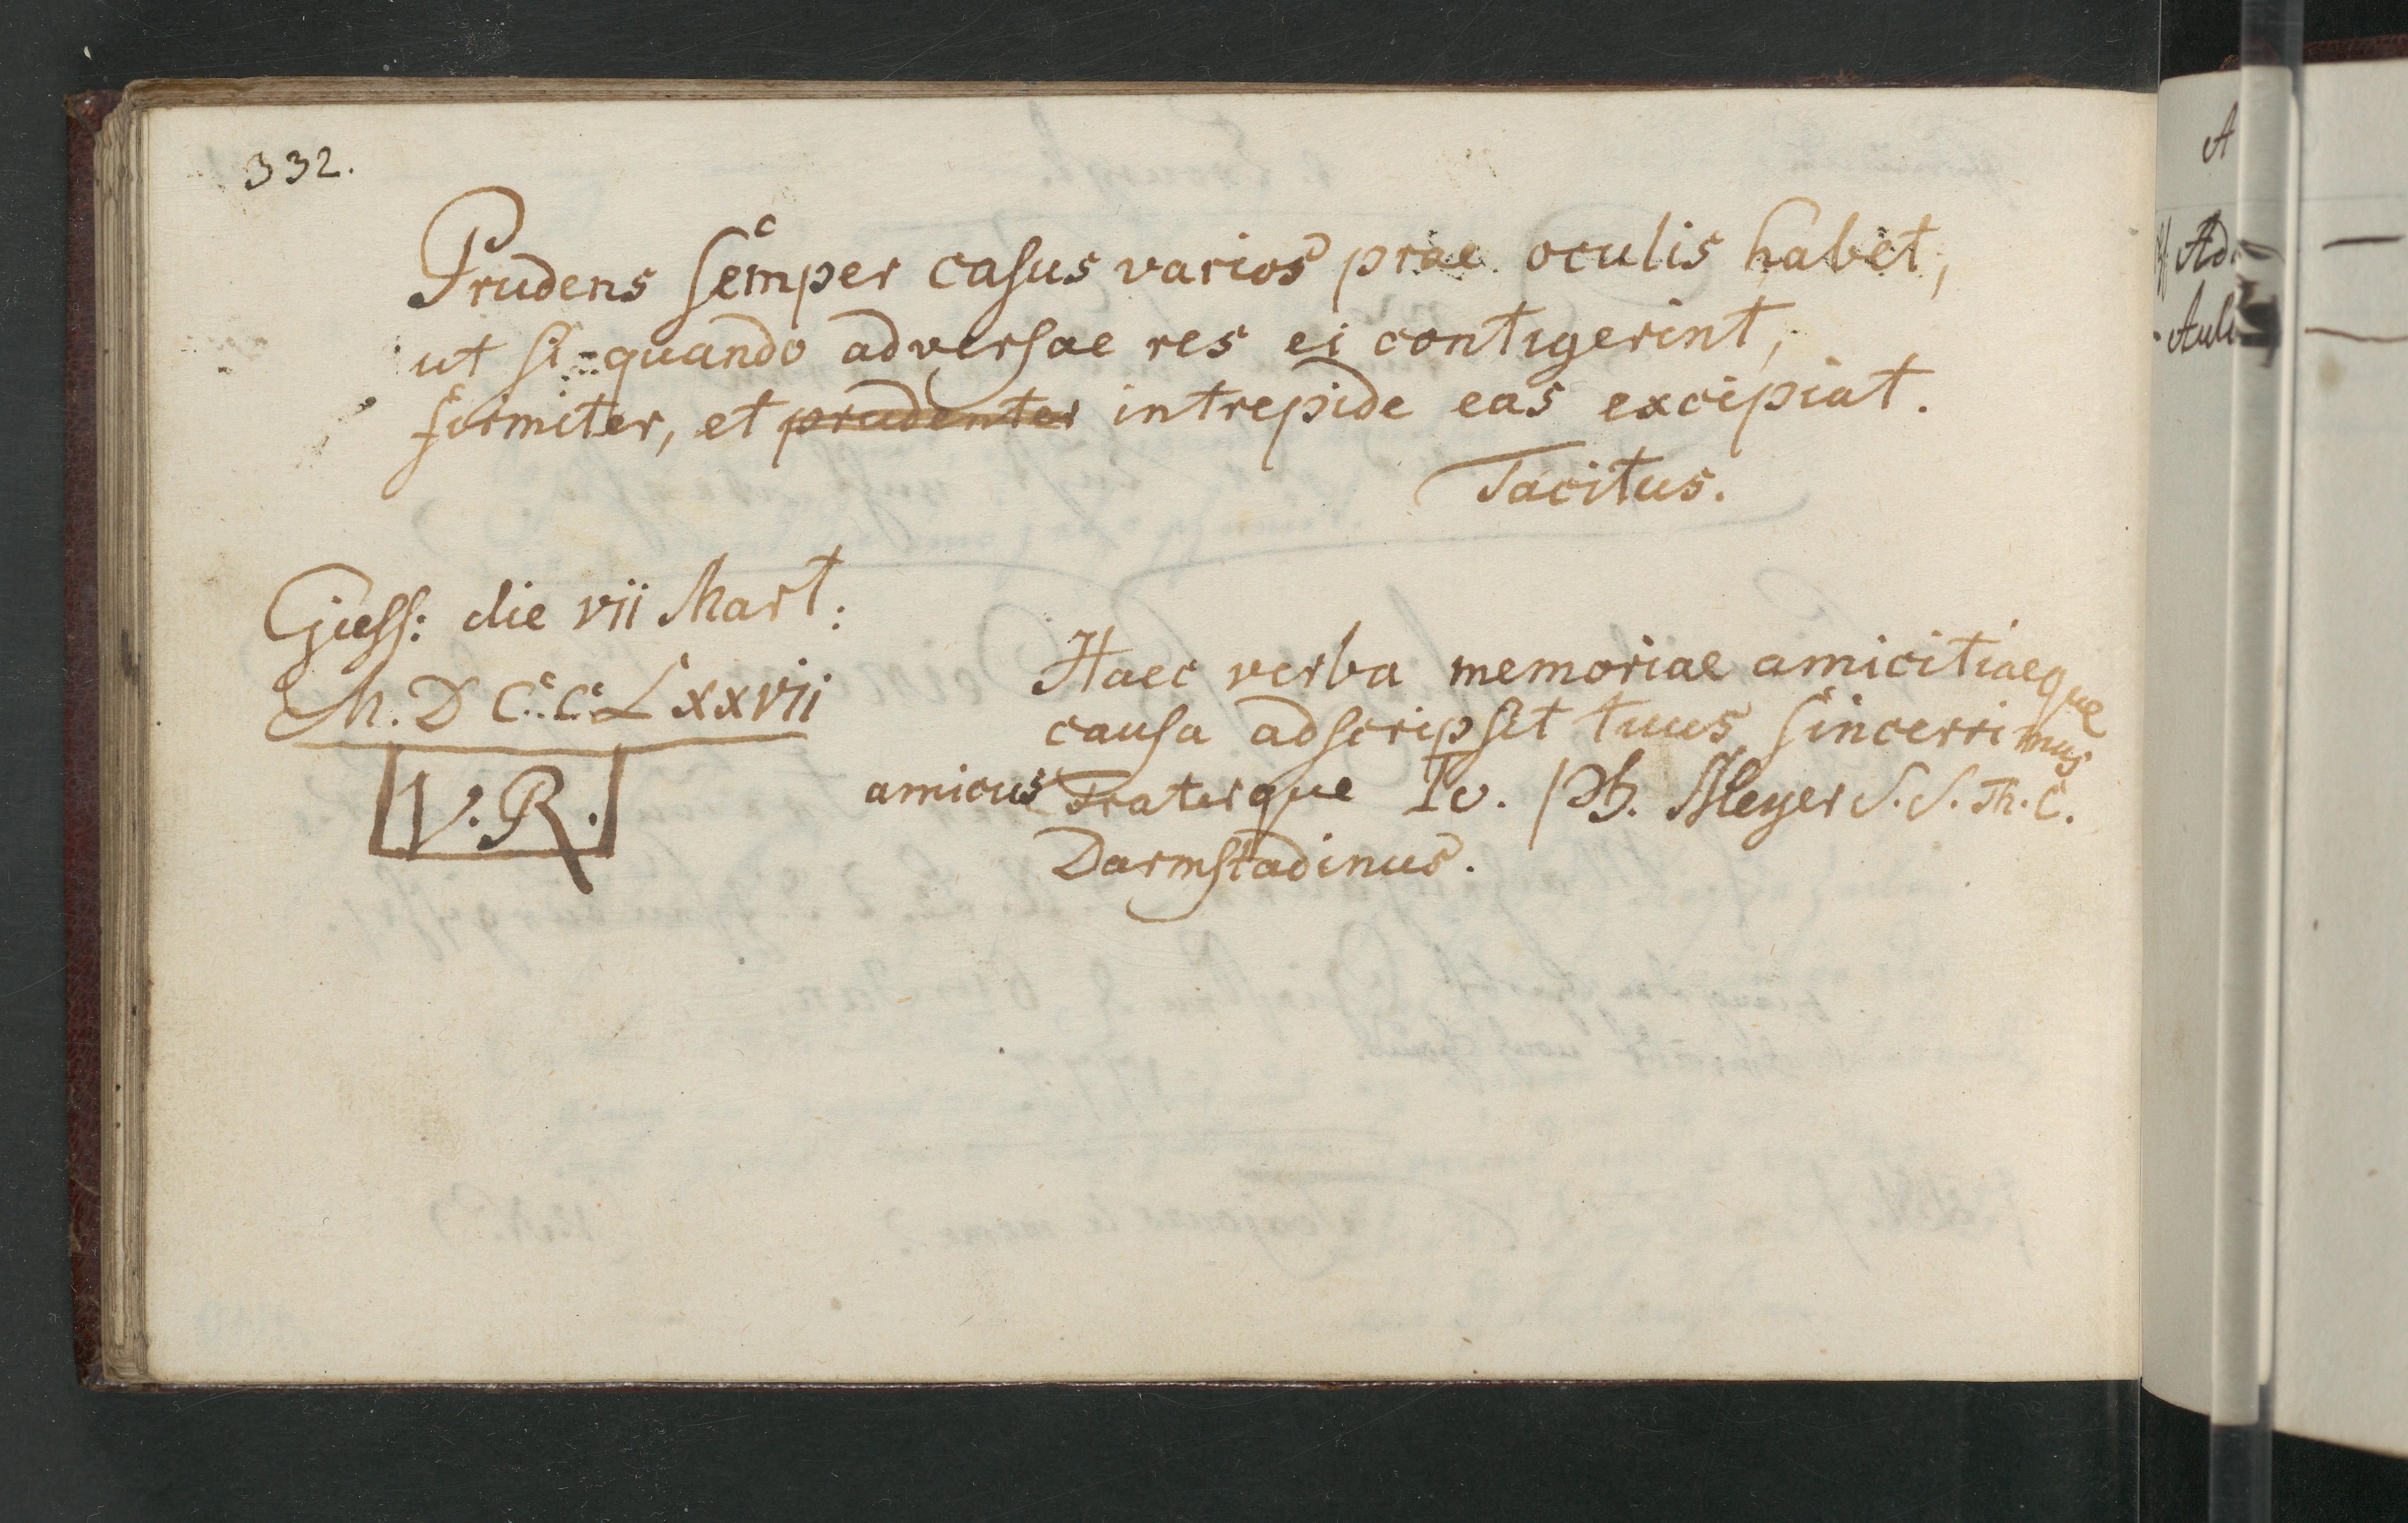 332.
Prudens semper casus varios prae oculis habet,
ut si-quando adversae res ei contigerint,
firmiter, et prudenter intrepide eas excipiat.
Tacitus.
Giess: die vii Mart:
M. D C. C. L xxvii
V. R.
Haec verba memoriae amicitiaeque
causa adscripsit tuus sincerrimus
amicus Fraterque Io. Ph. Meyer S. S. Th. C.
Darmstadinus.
A
Ad
Aul